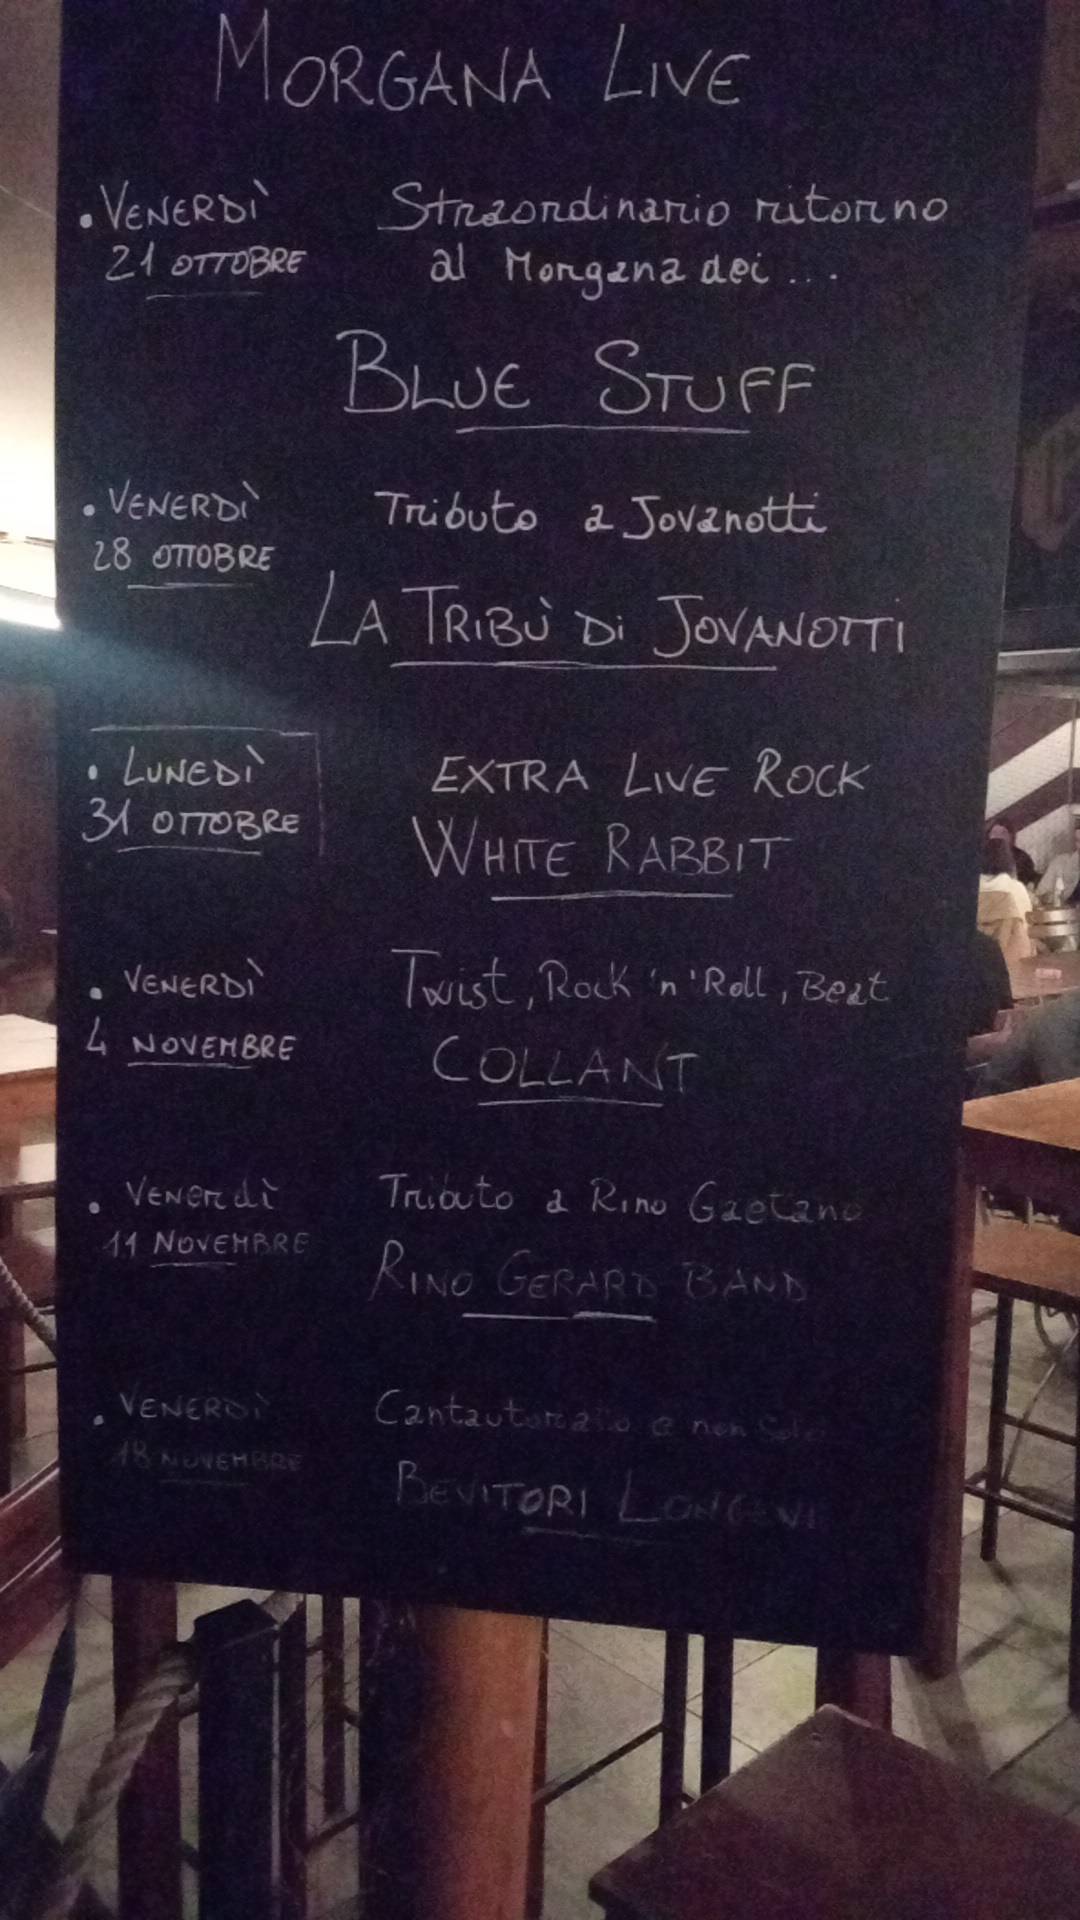 MORGANA LIVE
. VENERDÌ
21 OTTOBRE
Straordinario ritorno
al Morgana dei ...
BLUE STUFF
. VENERDÌ
28 OTTOBRE
Tributo a Jovanotti
LA TRIBÙ Di JOVANOTTI
. LUNEDÌ
31 OTTOBRE
EXTRA LIVE ROCK
WHITE RABBIT
. VENERDÌ
4 NOVEMBRE
Twist, Rock 'n' Roll, Beat
COLLANT
. Venerdì
11 NOVEMBRE
Tributo a Rino Gaetano
RINO GERARD BAND
. VENERDÌ
18 NOVEMBRE
Cantautorato e non Solo
BEVITORI LONGEVI